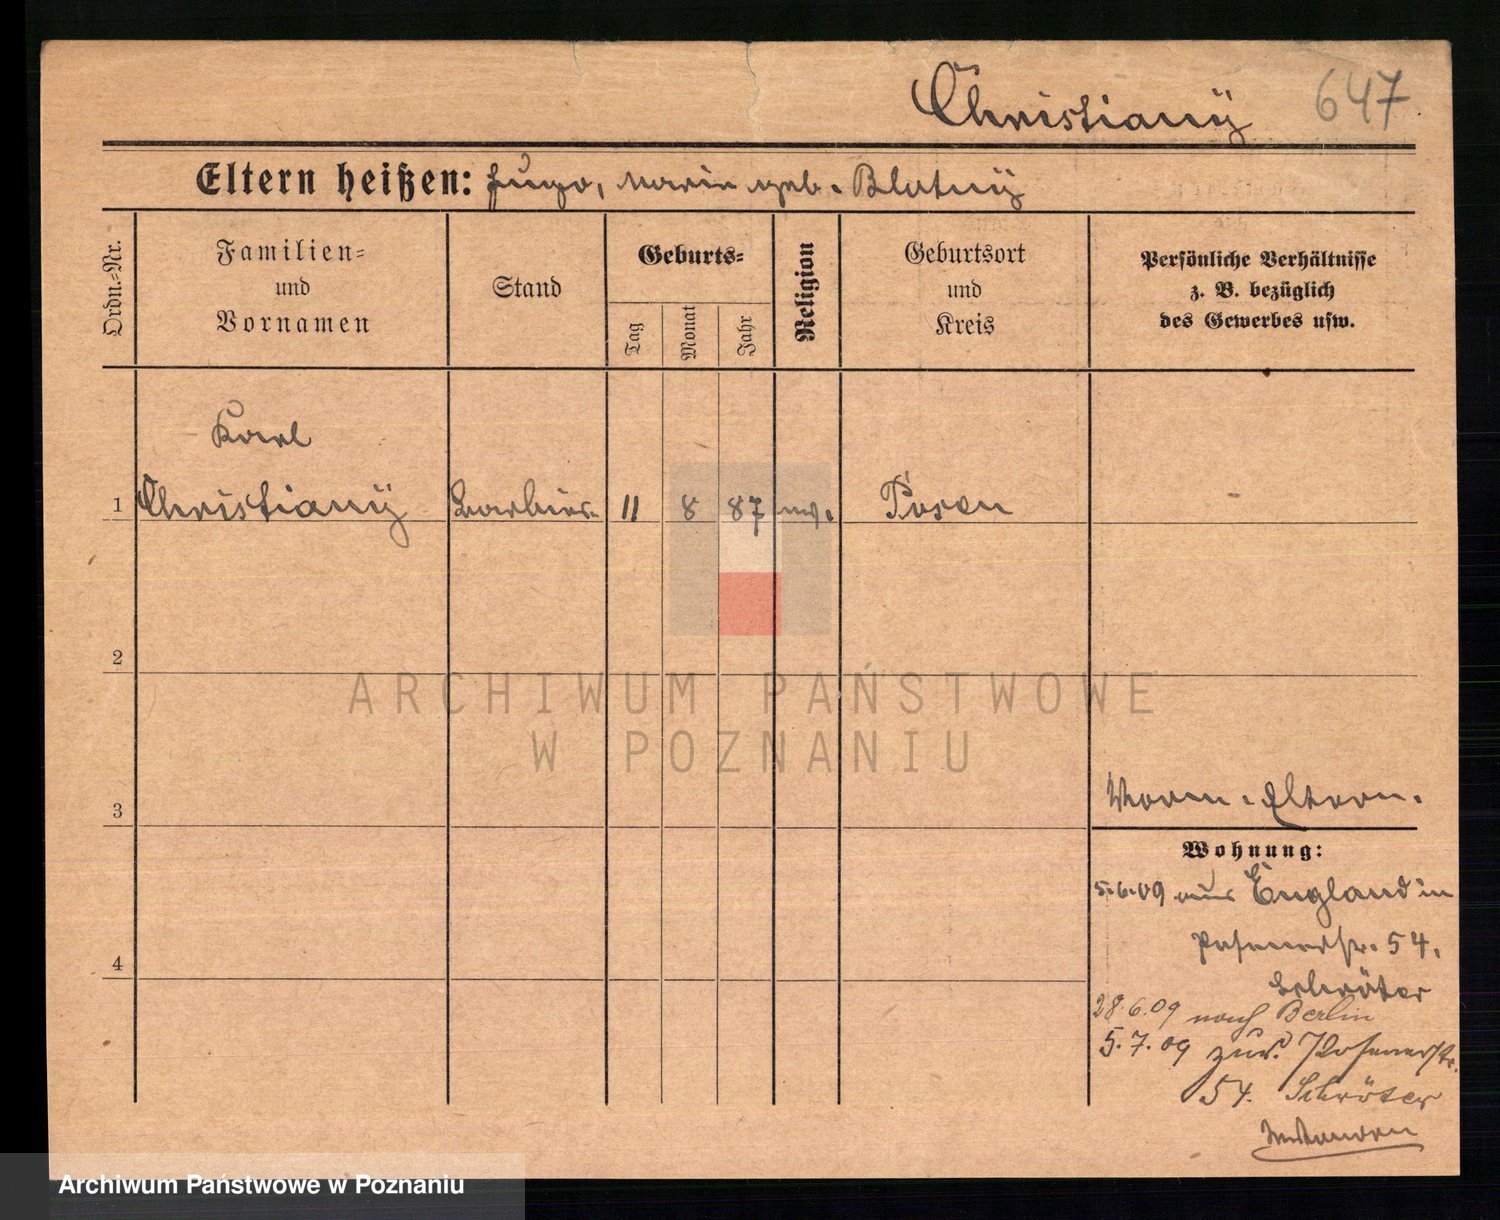 Christianÿ 647
Eltern heißen: Hugo, Marie geb. Blatnÿ
Ordn.-Nr.
Familien-
und
Vornamen
Stand
Geburts-
Tag
Monat
Jahr
Religion
Geburtsort
und
Kreis
Persönliche Verhältnisse
z. B. bezüglich
des Gewerbes usw.
Karl
1 Christianÿ Barbier. 11 8 87 Posen
2
ARCHIWUM PAŃSTWOWE
W POZNANIU
3 Eltern.
Wohnung:
5.6.09 aus England in
Posenerstr. 54.
Schröter
28.6.09 nach Berlin
5.7.09 zur. Posenerstr.
54. Schröter
4
Archiwum Państwowe w Poznaniu